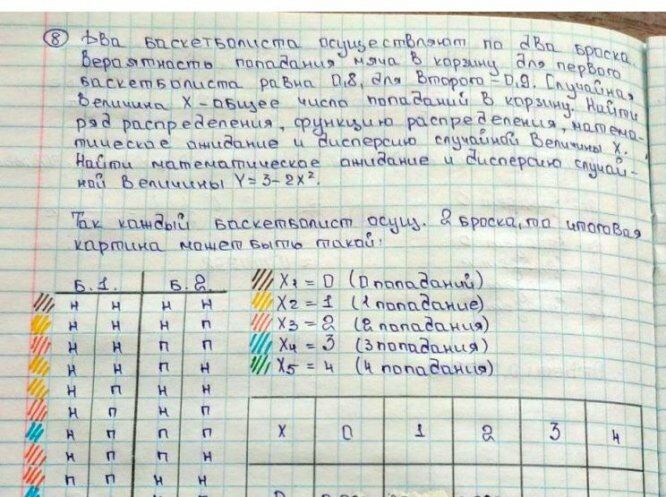 8 Два баскетболиста осуществляют по два броска.
Вероятность попадания мяча в корзину для первого
баскетболиста равна 0,8, для второго - 0,9. Случайная
величина X - общее число попаданий в корзину. Найти
ряд распределения, функцию распределения, матема-
тическое ожидание и дисперсию случайной величины X.
Найти математическое ожидание и дисперсию случай-
ной величины Y = 3 - 2X².
Так каждый баскетболист осущ. 2 броска, то итоговая
картина может быть такой:
Б. 1. Б. 2.
н н н н
н н н п
н н п п
н н п н
н п н н
н п н п
н п п п
н п п н
п п н н
X1 = 0 (0 попаданий)
X2 = 1 (1 попадание)
X3 = 2 (2 попадания)
X4 = 3 (3 попадания)
X5 = 4 (4 попадания)
X 0 1 2 3 4